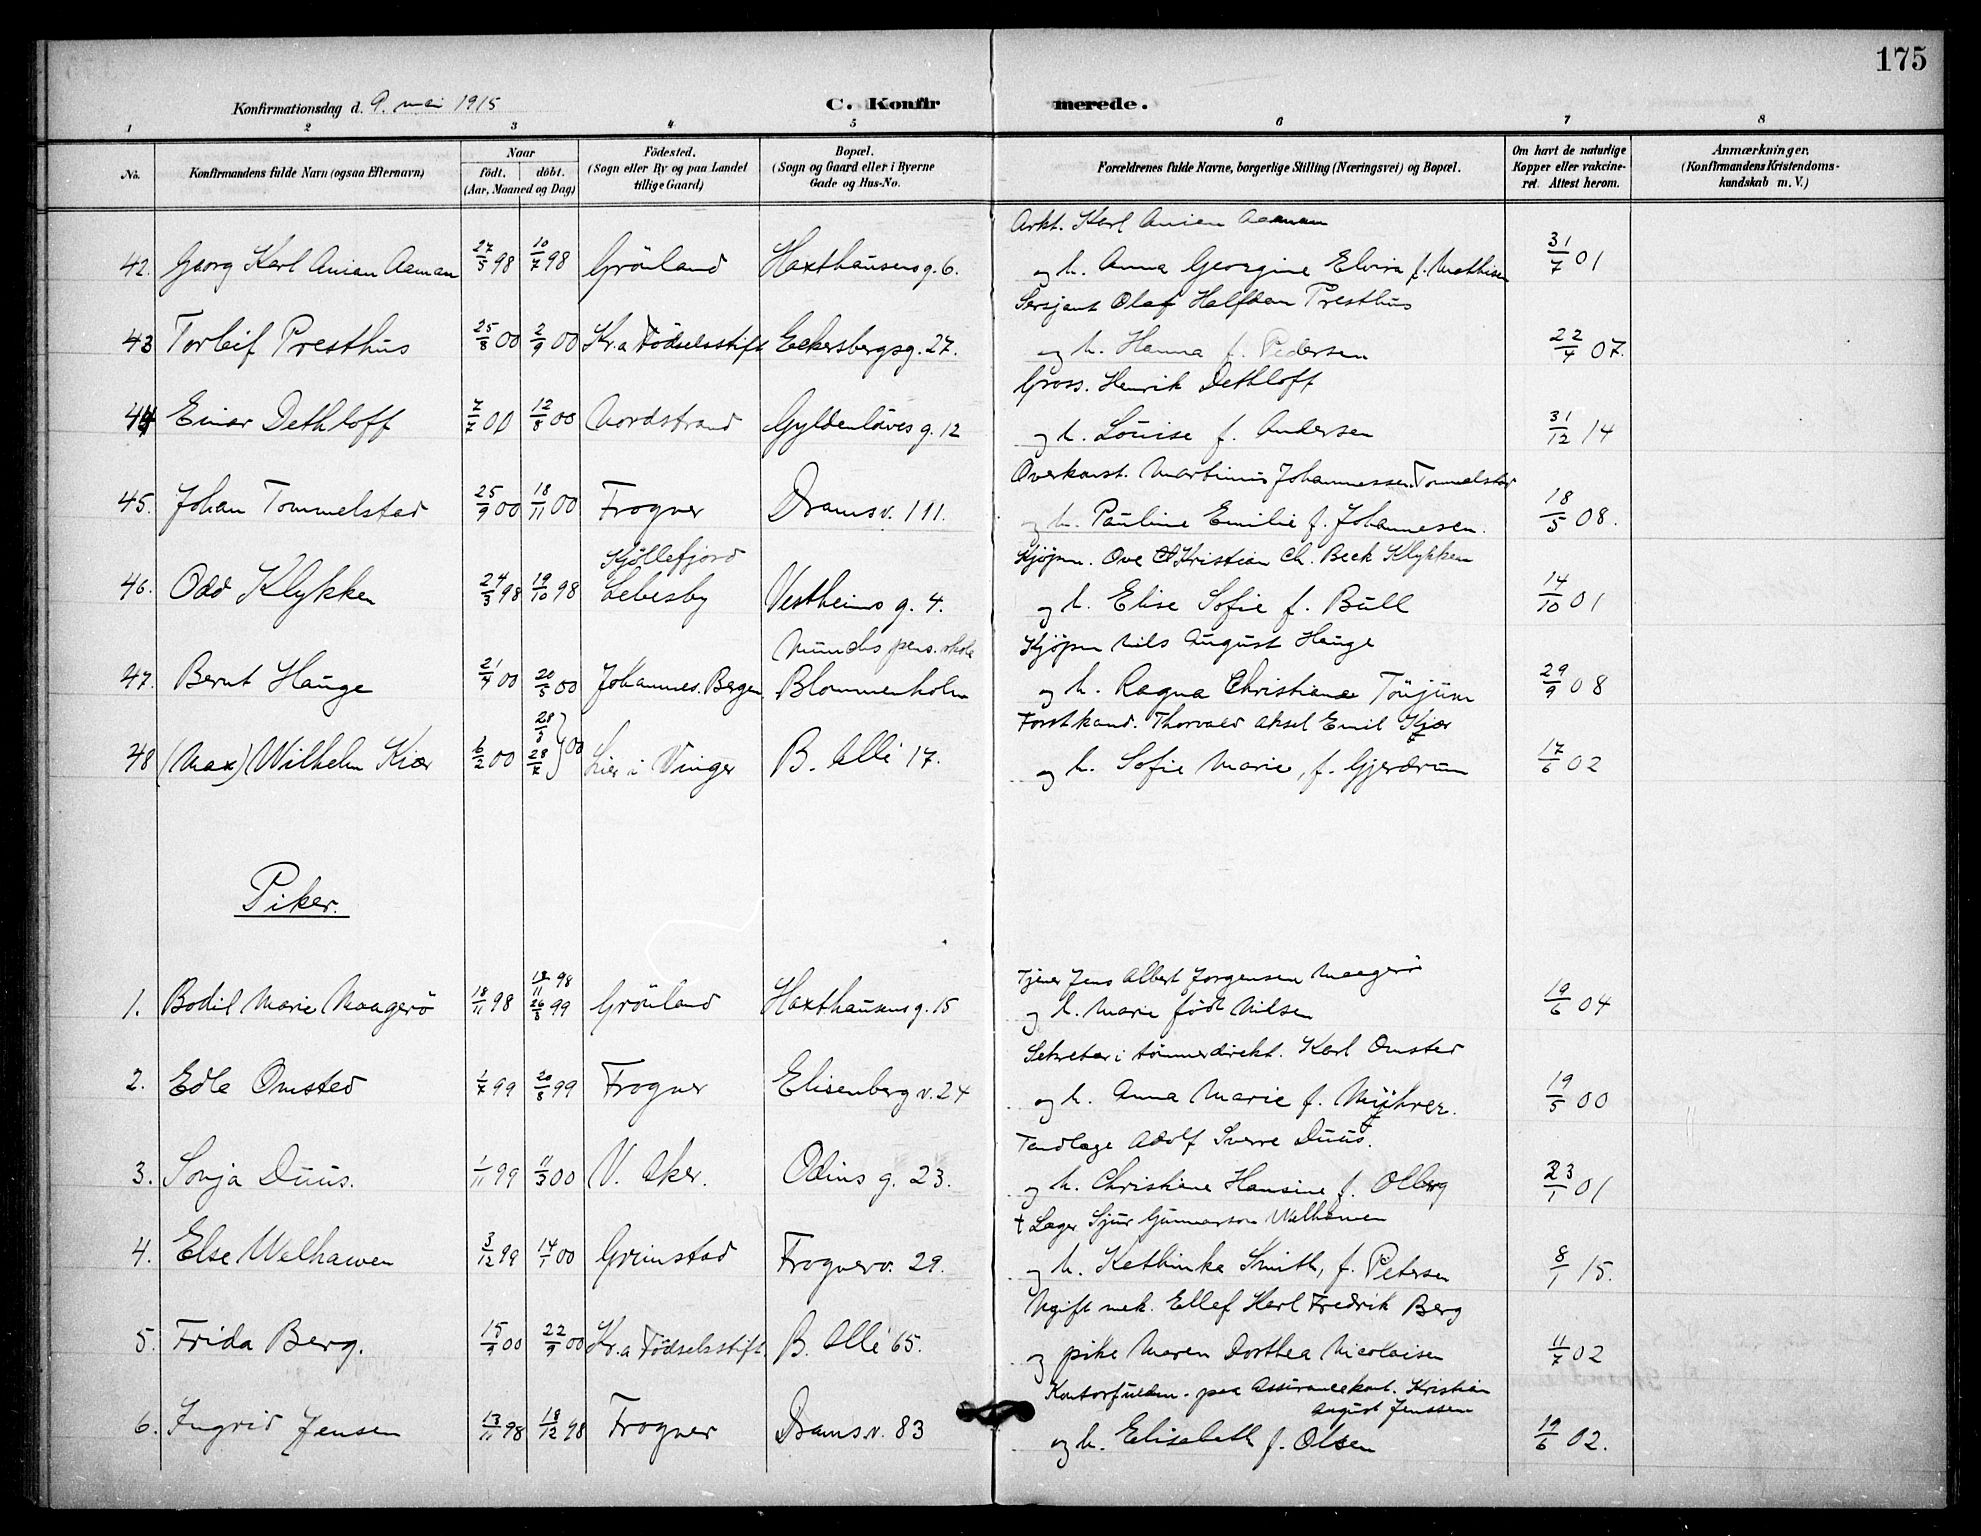 175
Konfirmationsdag d. 9. mai 1915
C. Konfirmerede.
1 2 3 4 5 6 7 8
No. Konfirmandens fulde Navn (ogsaa Efternavn) Naar födt. döbt. (Aar, Maaned og Dag) Födested. (Sogn eller By og paa Landet tillige Gaard) Bopæl. (Sogn og Gaard eller i Byerne Gade og Hus-No. Forældrenes fulde Navne, borgerlige Stilling (Næringsvei) og Bopæl. Om havt de naturlige Kopper eller vakcineret. Attest herom. Anmærkninger. (Konfirmandens Kristendomskundskab m. V.)
Arkt. Karl Anian Aaman
42. Georg Karl Anian Aaman 27/5 98 10/7 98 Grönland Haxthausens g. 6. og h. Anna Georgine Elvira f. Mathisen 31/7 01
Sersjant Olaf Halfdan Presthus
43 Torleif Presthus 25/8 00 2/9 00 Kr.a Födselsstift Eckersbergsg. 27. og h. Hanna f. Pedersen 22/4 07.
Gross. Henrik Dethloff
44 Einar Dethloff 7/7 00 12/8 00 Nordstrand Gyldenlöves g. 12 og h. Louise f. Andersen 31/12 14
Overkonst. Martinius Johannessen Tommelstad
45. Johan Tommelstad 25/9 00 18/11 00 Frogner Dramsv. 111. og h. Pauline Emilie f. Johannesen. 18/5 08.
Kjöllefjord Kjøpm. Ove Kristian Ch. Beck Klykken
46. Odd Klykken 24/3 98 19/10 98 Lebesby Vestheims g. 4. og h. Elise Sofie f. Bull 14/10 01
Munchs pens. skole Kjöpm Nils August Hauge
47. Bernt Hauge 21/4 00 20/5 00 Johannes. Bergen Blommenholm og h. Ragna Christiane Tönjum 29/9 08
28/5 Forstkand. Thorvald Aksel Emil Kjær
48 (Max) Wilhelm Kiær 6/2 00 28/7 } 00 Lier i Vinger B. Allé 17. og h. Sofie Marie, f. Gjerdrum 17/6 02
Piker.
18/11 98 Tjener Jens Albert Jorgensen Maagerö
1. Bodil Marie Maagerö 18/11 98 26/3 99 Grönland Haxthausens g. 15 og h. Marie födt Nilsen 19/6 04
Sekretær i tömmerdirekt. Karl Omsted
2. Edle Omsted 1/7 99 20/8 99 Frogner Elisenberg v. 24 og h. Anna Marie f. 19/5 00
Tandlæge Adolf Sverre Duus.
3. Sonja Duus. 1/11 99 11/3 00 V. Aker. Odins g. 23. og h. Christiane Hansine f. Olberg 23/1 01
† Læger Sjur Gunnarson Welhaven
4. Else Welhaven 3/12 99 14/1 00 Grimstad Frognerv. 29. og h. Kathinka Smith, f. Petersen 8/1 15.
Ugift mek. Ellef Karl Fredrik Berg
5. Frida Berg. 15/9 00 22/9 00 Kr.a Födselsstift. B. Allé 65. og pike Maren Dorthea Nicolaisen 11/7 02
Kontorfuldm. paa Assurancekont. Kristian
August Jenssen
6. Ingrid Jensen 13/11 98 18/12 98 Frogner Dramsv. 83 og h. Elisabeth f. Olsen 19/6 02.